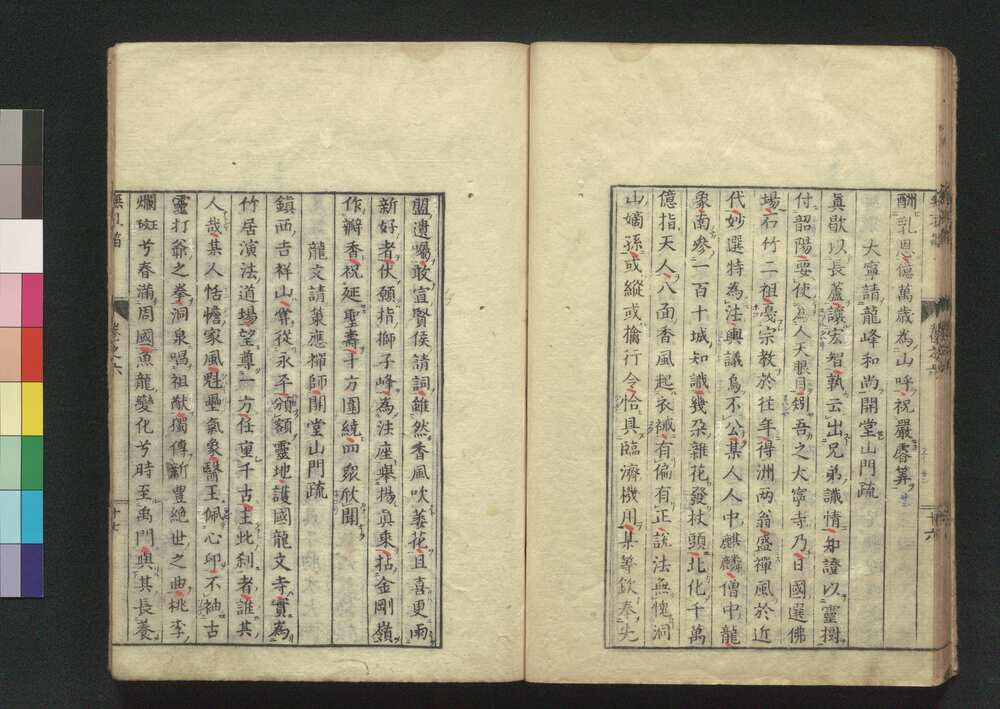 酬乳恩億萬歳為山呼祝嚴睿筭
大寧請龍峰和尚開堂山門疏
眞歇以長蘆讓宏智孰云出兄弟識情知證以靈樹
付韶陽要使人天眼目矧吾之大寧寺乃日國選佛
場石竹二祖戞宗教於往年得洲兩翁盛禪風於近
代妙選特為法輿議烏不公某人人中麒麟僧中龍
象南參一百十城知識幾朶雜花發杖頭北化千萬
億指天人八面香風起衣裓有偏有正説法無愧洞
山嫡孫或縱或擒行令恰具臨濟機用某等欽奉先
盟遺囑敢宣賢侯請詞雖然香風吹萎花且喜更雨
新好者伏願指獅子峰為法座舉揚眞乘拈金剛嶺
作瓣香祝延聖壽十方圍繞而衆欣聞
龍文請菓應禪師開堂山門疏
鎮西吉祥山奮從永平頒額靈地護國龍文寺實為
竹居演法道場望尊一方任重千古主此刹者誰其
人哉某人恬憺家風魁壘氣象醫王佩心印不袖古
靈打爺之拳洞泉唱祖猷獨傳新豐絶世之曲桃李
爛斑兮春滿周國魚龍變化兮時至禹門與其長養